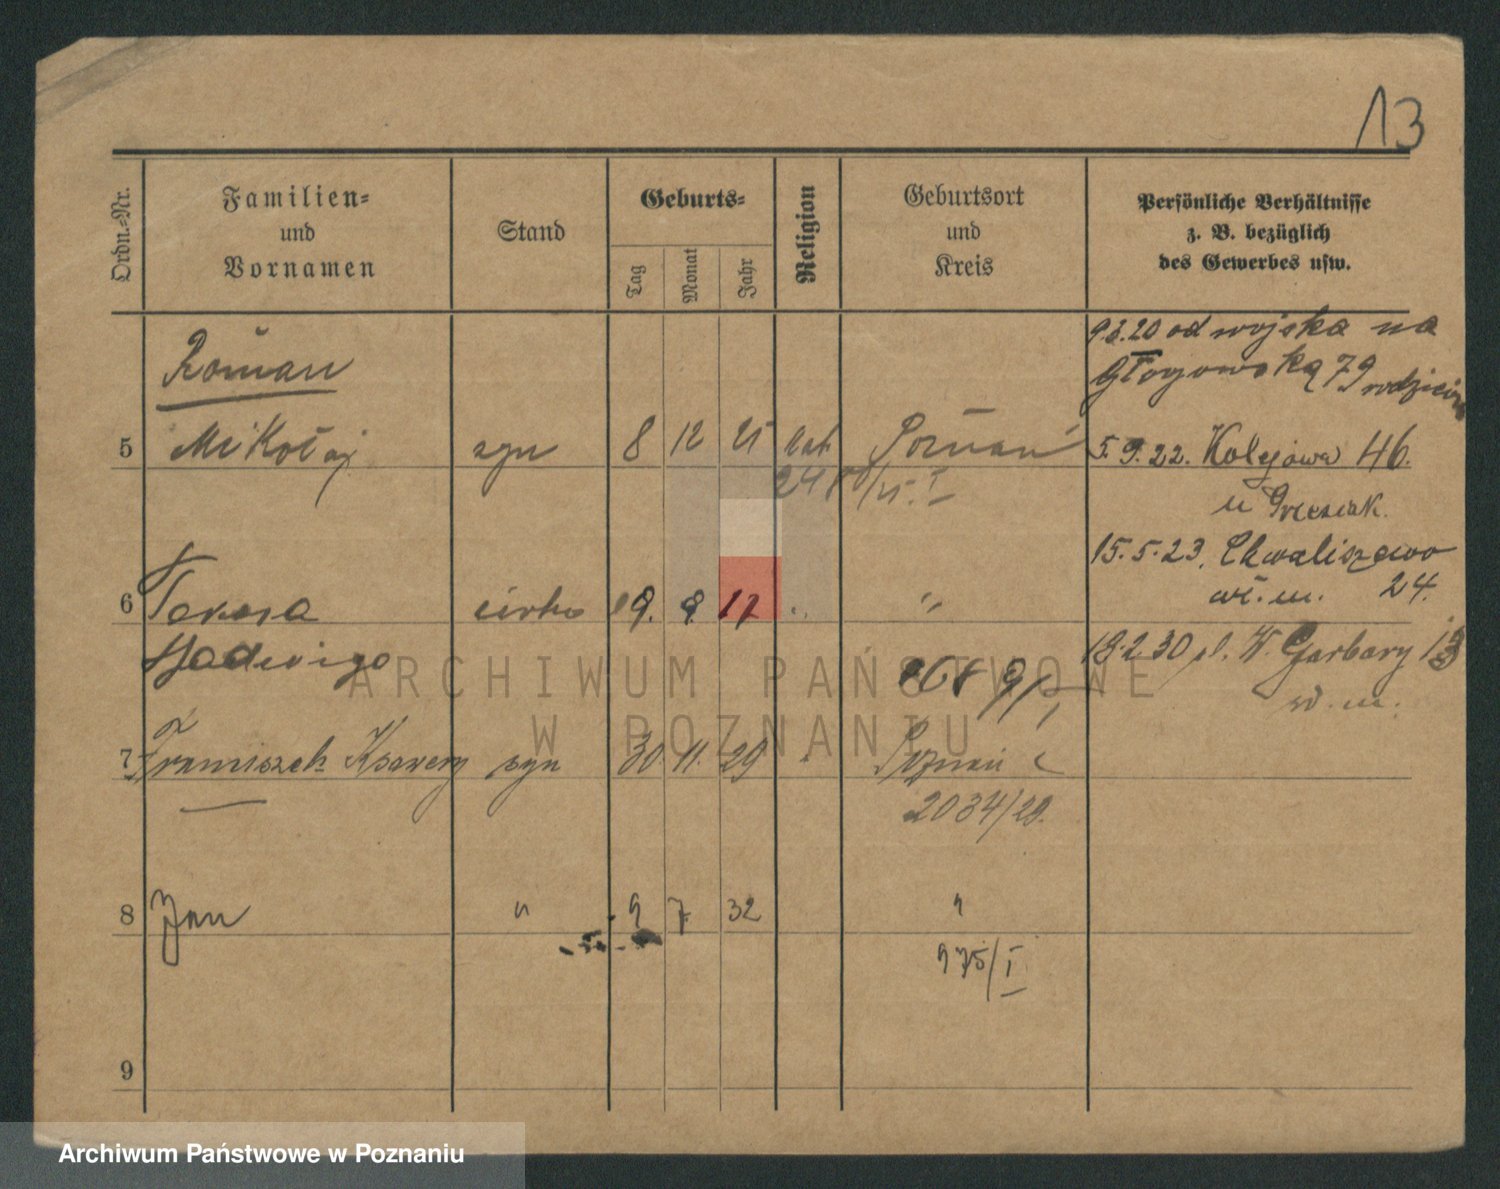 13
Ordn.=Nr.
Familien=
und
Vornamen
Stand
Geburts=
Tag
Monat
Jahr
Religion
Geburtsort
und
Kreis
Persönliche Verhältnisse
z. B. bezüglich
des Gewerbes usw.
Roman
5 Mikołaj syn 8 12 kat Poznań
6 Teresa córka 9. 12 "
Jadwiga
7 Franciszek Ksawery syn 30 11. 29 Poznań
2034/29.
8 Jan " 9 7. 32 "
975/I
9
20 od wojska na
Głogowską 79
5.9.22. Kolejowa 46.
u
15.5.23. Chwaliszewo
24.
13.2.30 pl. W. Garbary 13
ARCHIWUM PAŃSTWOWE
W POZNANIU
Archiwum Państwowe w Poznaniu